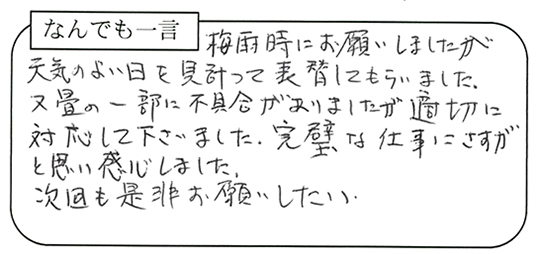 なんでも一言
梅雨時にお願いしましたが
天気のよい日を見計って表替してもらいました。
又畳の一部に不具合がありましたが適切に
対応して下さいました。完璧な仕事にさすが
と思い感心しました。
次回も是非お願いしたい。